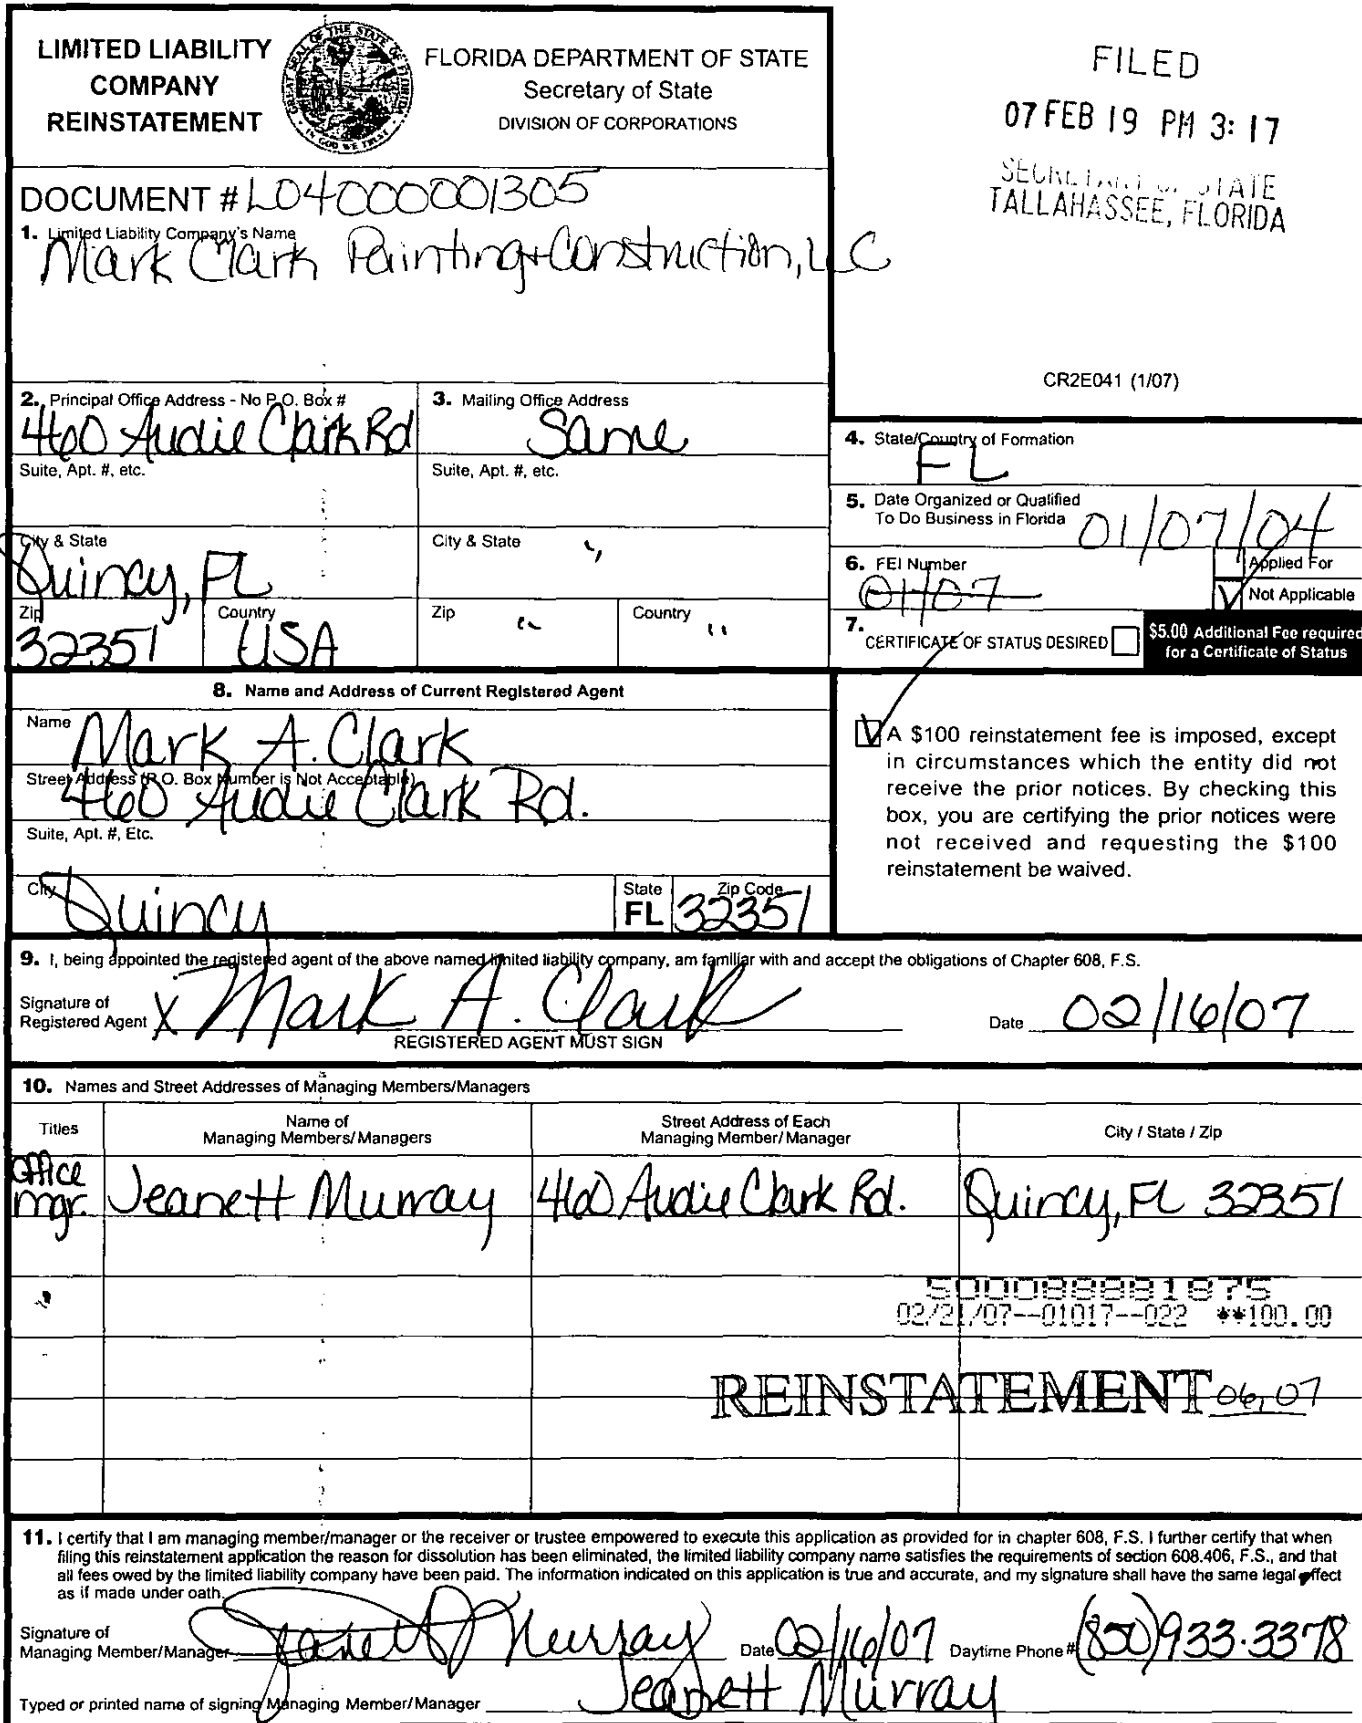 LIMITED LIABILITY
COMPANY
REINSTATEMENT
FLORIDA DEPARTMENT OF STATE
Secretary of State
DIVISION OF CORPORATIONS
FILED
07 FEB 19 PM 3: 17
SECRETARY OF STATE
TALLAHASSEE, FLORIDA
DOCUMENT # L04000001305
1. Limited Liability Company's Name
Mark Clark Painting + Construction, LLC
CR2E041 (1/07)
2. Principal Office Address - No P.O. Box #
460 Audie Clark Rd
3. Mailing Office Address
Same
Suite, Apt. #, etc.
Suite, Apt. #, etc.
City & State
Quincy, FL
City & State "
Zip
32351
Country
USA
Zip "
Country "
4. State/Country of Formation
FL
5. Date Organized or Qualified
To Do Business in Florida 01/07/04
6. FEI Number
01/07
Applied For
Not Applicable
7. CERTIFICATE OF STATUS DESIRED
$5.00 Additional Fee required
for a Certificate of Status
8. Name and Address of Current Registered Agent
Name Mark A. Clark
Street Address (P.O. Box Number is Not Acceptable)
460 Audie Clark Rd.
Suite, Apt. #, Etc.
City Quincy
State
FL
Zip Code
32351
A $100 reinstatement fee is imposed, except
in circumstances which the entity did not
receive the prior notices. By checking this
box, you are certifying the prior notices were
not received and requesting the $100
reinstatement be waived.
9. I, being appointed the registered agent of the above named limited liability company, am familiar with and accept the obligations of Chapter 608, F.S.
Signature of
Registered Agent X Mark A. Clark
Date 02/16/07
REGISTERED AGENT MUST SIGN
10. Names and Street Addresses of Managing Members/Managers
Titles
Name of
Managing Members/Managers
Street Address of Each
Managing Member/Manager
City / State / Zip
Office
mgr. Jeanett Murray 460 Audie Clark Rd. Quincy, FL 32351
500088881875
02/21/07--01017--022 **100.00
REINSTATEMENT 06, 07
11. I certify that I am managing member/manager or the receiver or trustee empowered to execute this application as provided for in chapter 608, F.S. I further certify that when
filing this reinstatement application the reason for dissolution has been eliminated, the limited liability company name satisfies the requirements of section 608.406, F.S., and that
all fees owed by the limited liability company have been paid. The information indicated on this application is true and accurate, and my signature shall have the same legal effect
as if made under oath.
Signature of
Managing Member/Manager Jeanett Murray Date 02/16/07 Daytime Phone # (850) 933-3378
Typed or printed name of signing Managing Member/Manager Jeanett Murray